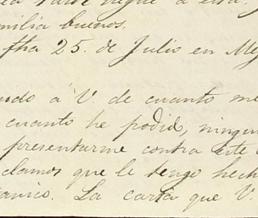 milia buenos.
fha 25. de Julio en Mej
ando á V de cuanto me
cuanto he podido, ningun
presentarme contra este
clamos que le tengo hech
anico. La carta que V.